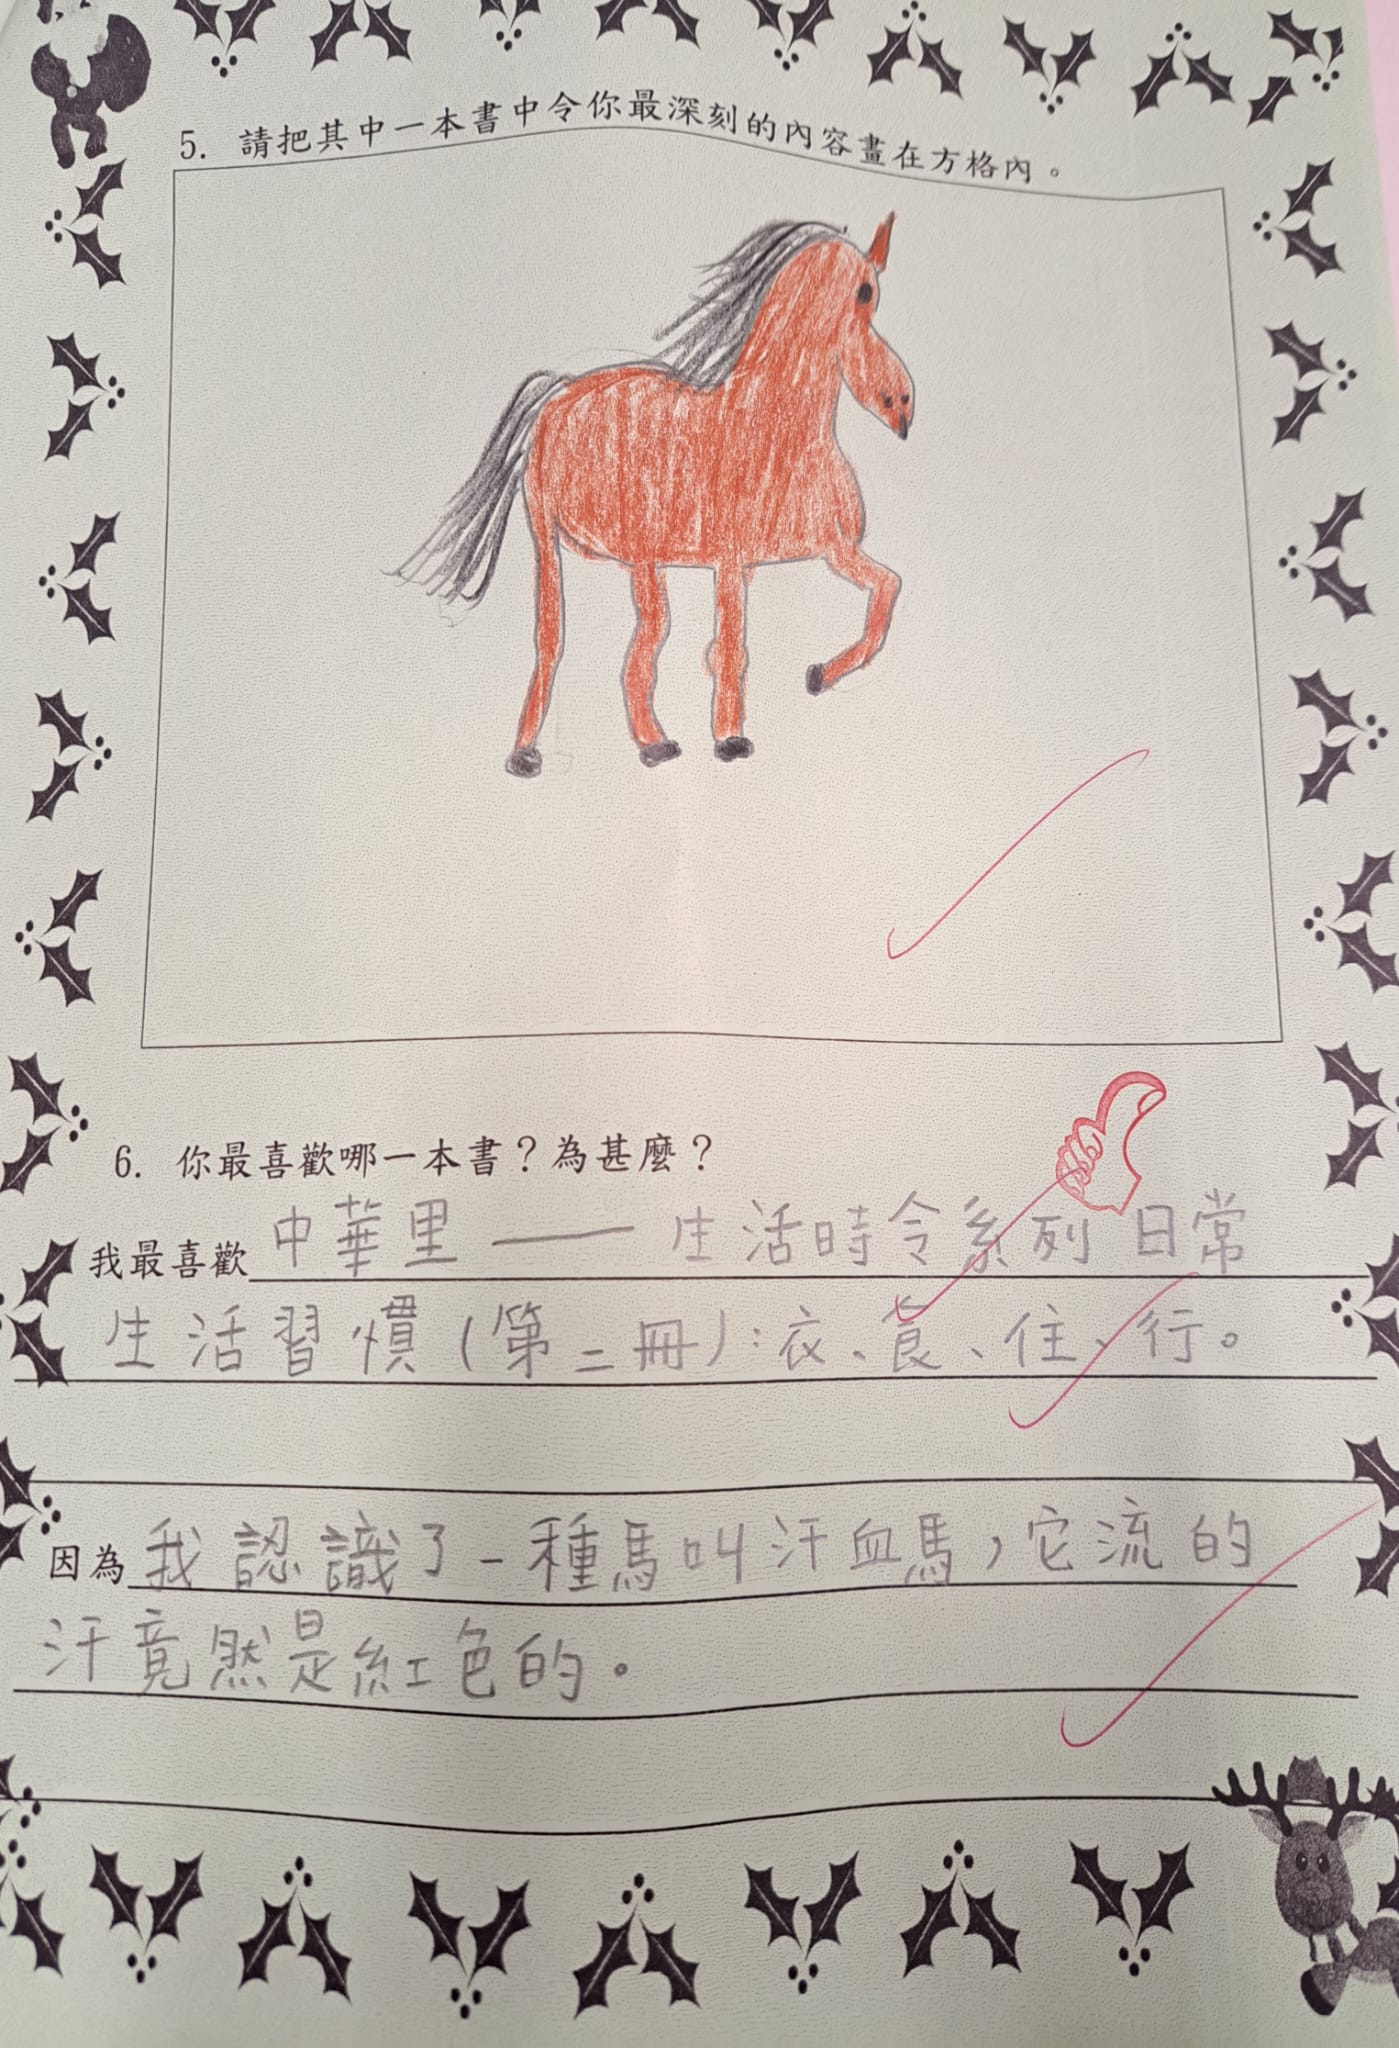 5. 請把其中一本書中令你最深刻的內容畫在方格內。
6. 你最喜歡哪一本書？為甚麼？
我最喜歡 中華里——生活時令系列 日常
生活習慣(第二冊)：衣、食、住、行。
因為我認識了一種馬叫汗血馬，它流的
汗竟然是紅色的。